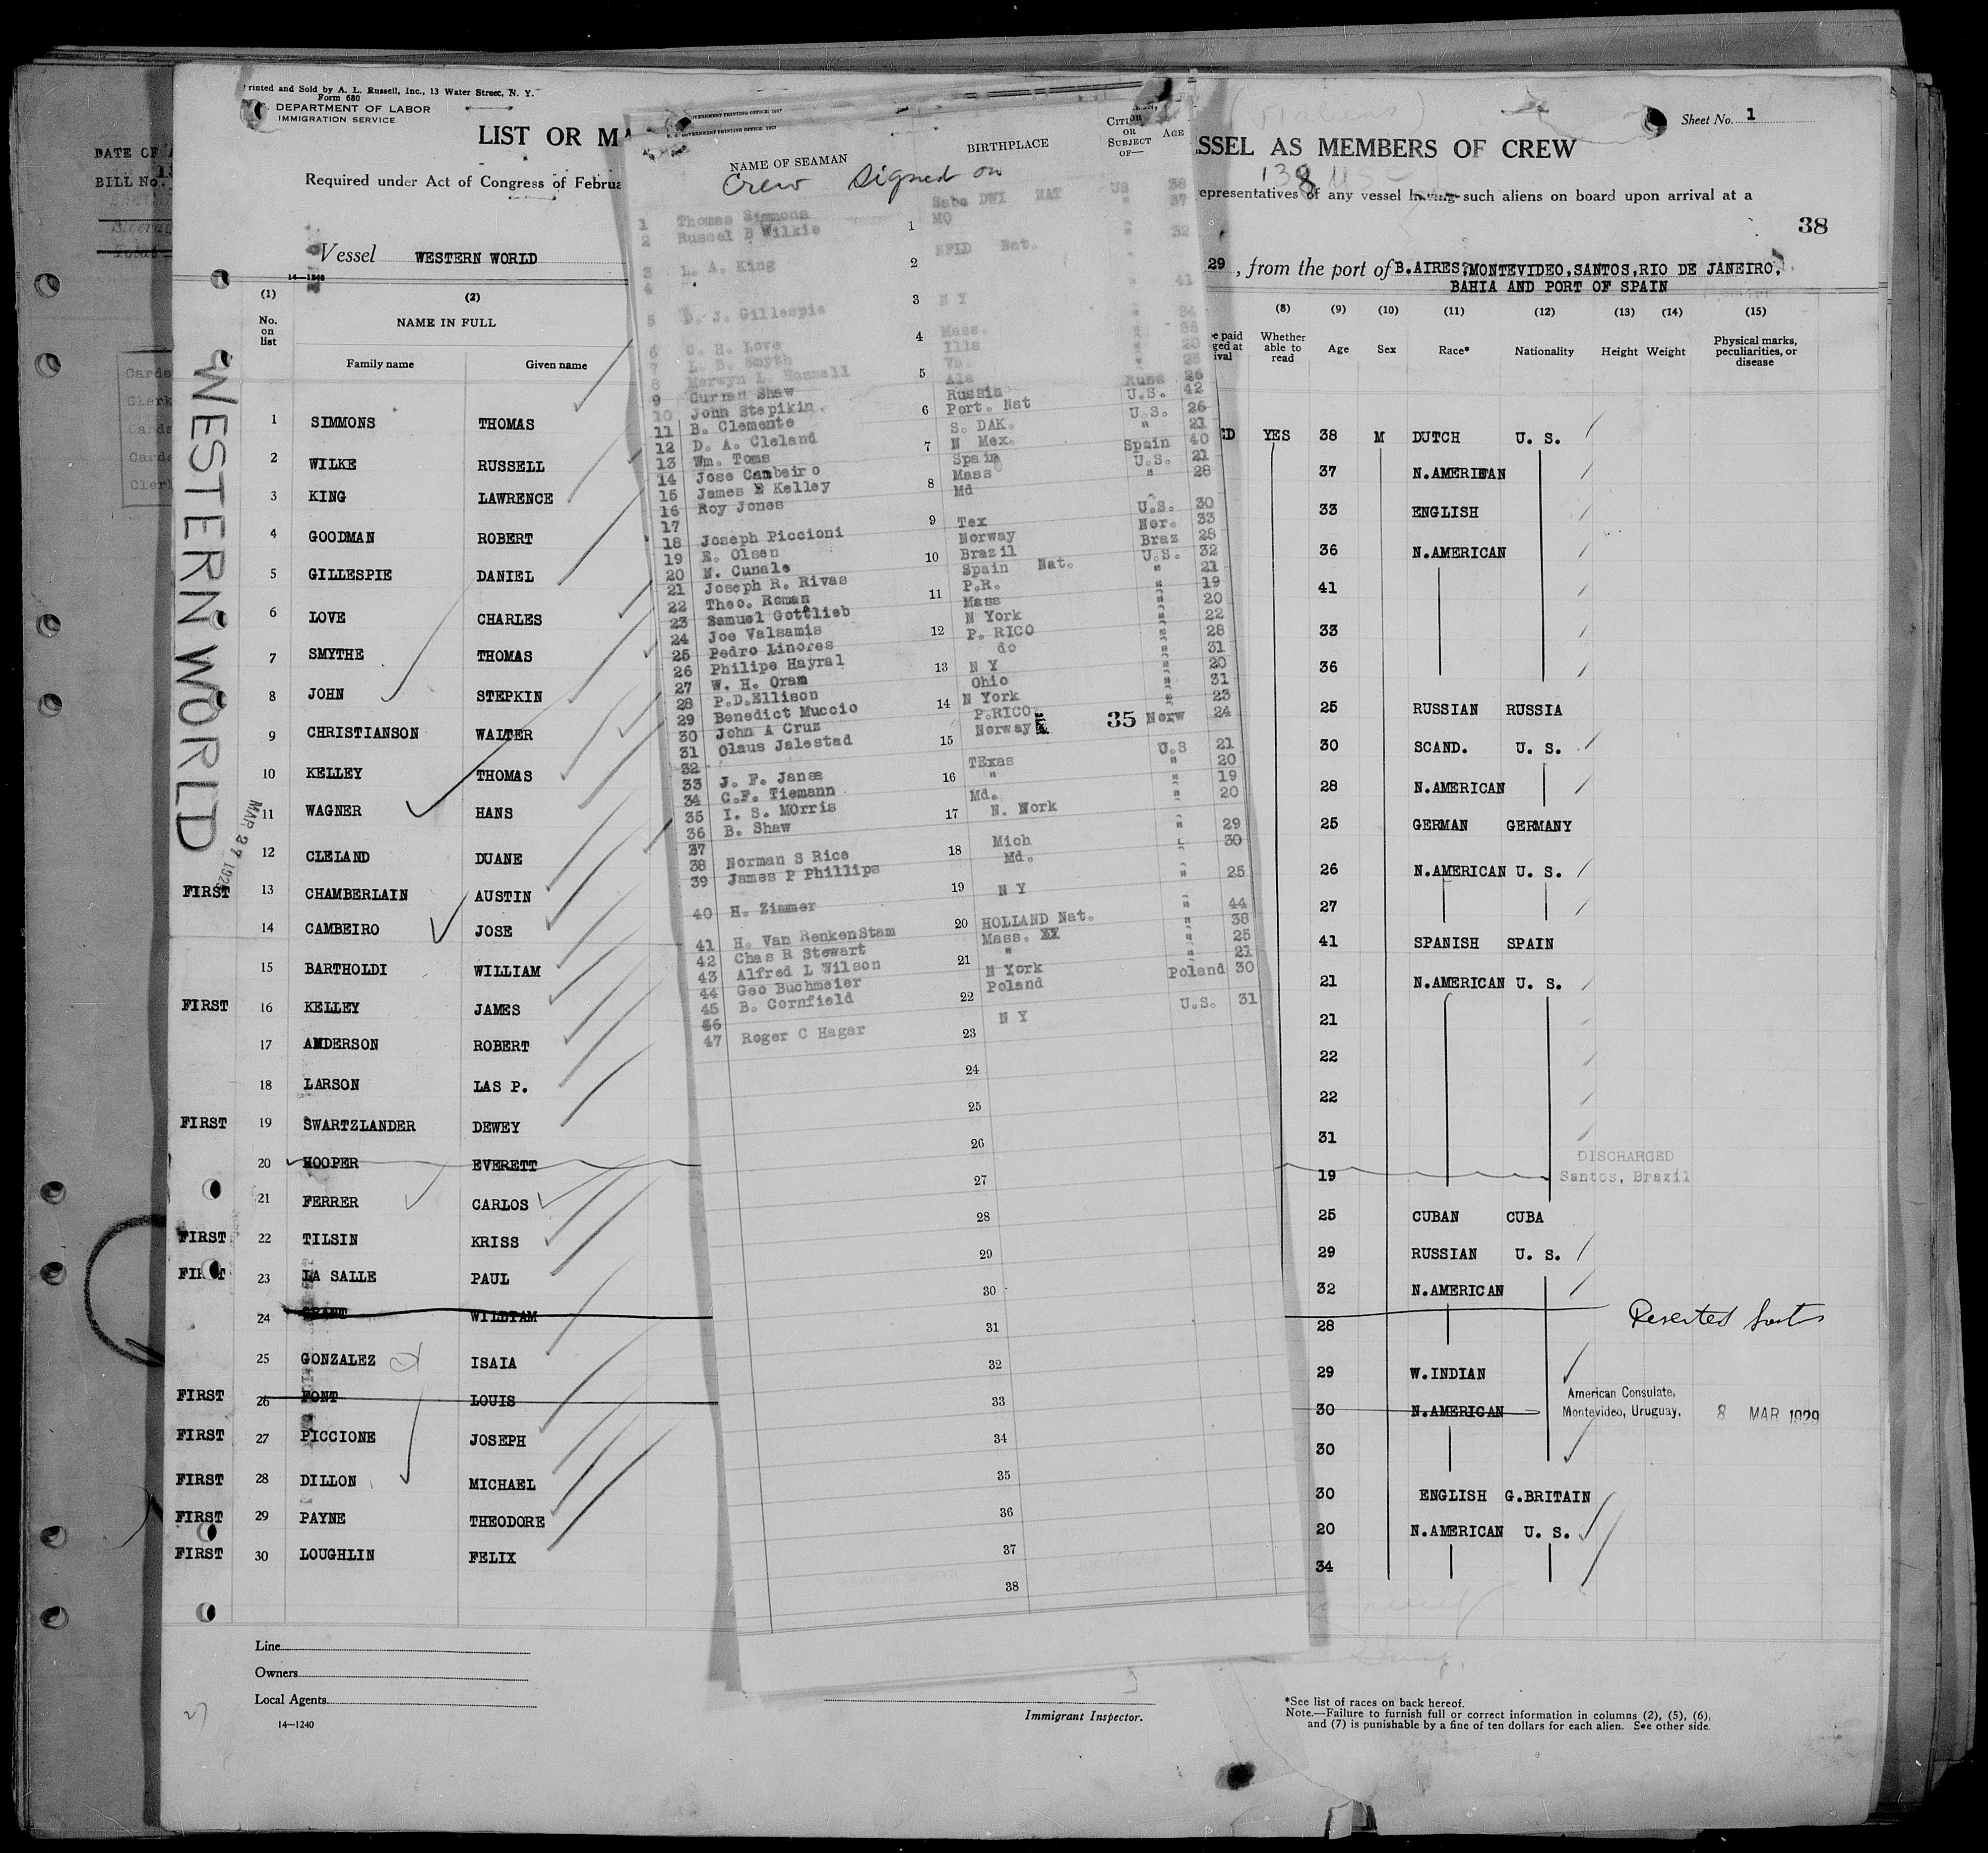 Printed and Sold by A. L. Russell, Inc., 13 Water Street, N. Y.
Form 680
DEPARTMENT OF LABOR
IMMIGRATION SERVICE
LIST OR MA
SSEL AS MEMBERS OF CREW
Sheet No. 1
Required under Act of Congress of Februa
epresentatives of any vessel having such aliens on board upon arrival at a
38
Vessel WESTERN WORLD
29, from the port of B.AIRES, MONTEVIDEO, SANTOS, RIO DE JANEIRO,
BAHIA AND PORT OF SPAIN
14-1240
DATE OF A
BILL No.
Cards
Clerk
Cards
Cards
Clerk
WESTERN WORLD
MAR 27 1929
(1) (2) (8) (9) (10) (11) (12) (13) (14) (15)
No. on list NAME IN FULL Whether able to read Age Sex Race* Nationality Height Weight Physical marks, peculiarities, or disease
Family name Given name
1 SIMMONS THOMAS ED YES 38 M DUTCH U. S.
2 WILKE RUSSELL 37 N.AMERICAN
3 KING LAWRENCE 33 ENGLISH
4 GOODMAN ROBERT 36 N.AMERICAN
5 GILLESPIE DANIEL 41
6 LOVE CHARLES 33
7 SMYTHE THOMAS 36
8 JOHN STEPKIN 25 RUSSIAN RUSSIA
9 CHRISTIANSON WALTER 30 SCAND. U. S.
10 KELLEY THOMAS 28 N.AMERICAN
11 WAGNER HANS 25 GERMAN GERMANY
12 CLELAND DUANE 26 N.AMERICAN U. S.
FIRST 13 CHAMBERLAIN AUSTIN 27
14 CAMBEIRO JOSE 41 SPANISH SPAIN
15 BARTHOLDI WILLIAM 21 N.AMERICAN U. S.
FIRST 16 KELLEY JAMES 21
17 ANDERSON ROBERT 22
18 LARSON LAS P. 22
FIRST 19 SWARTZLANDER DEWEY 31
20 HOOPER EVERETT 19 DISCHARGED
Santos, Brazil
21 FERRER CARLOS 25 CUBAN CUBA
FIRST 22 TILSIN KRISS 29 RUSSIAN U. S.
FIRST 23 LA SALLE PAUL 32 N.AMERICAN
24 GRANT WILLIAM 28 Deserted Santos
25 GONZALEZ ISAIA 29 W.INDIAN
FIRST 26 FONT LOUIS 30 N.AMERICAN American Consulate,
Montevideo, Uruguay. 8 MAR 1929
FIRST 27 PICCIONE JOSEPH 30
FIRST 28 DILLON MICHAEL 30 ENGLISH G.BRITAIN
FIRST 29 PAYNE THEODORE 20 N.AMERICAN U. S.
FIRST 30 LOUGHLIN FELIX 34
NAME OF SEAMAN BIRTHPLACE CITIZEN OR SUBJECT OF— AGE
Crew Signed on
1 Thomas Simmons Saba DWI NAT US 38
2 Russel B Wilkie MO " 37
3 L. A. King NFLD Nat. " 32
4
5 D. J. Gillespie N Y " 41
6 C. H. Love Mass. " 34
7 L. B. Smyth Ills "
8 Merwyn L Hassell Va.
9 Curran Shaw Ala
10 John Stepikin Russia Russ 26
11 B. Clemente Port. Nat U.S. 42
12 D. A. Cleland S. DAK. U.S. 26
13 Wm. Toms N Mex. " 21
14 Jose Cambeiro Spain Spain 40
15 James E Kelley Mass U.S. 21
16 Roy Jones Md " 28
17
18 Joseph Piccioni Tex U.S. 30
19 E. Olsen Norway Nor. 33
20 M. Cunale Brazil Braz 28
21 Joseph R. Rivas Spain Nat. U.S. 32
22 Theo. Roman P.R. " 21
23 Samuel Gottlieb Mass " 19
24 Joe Valsamis N York " 20
25 Pedro Linores P. RICO " 22
26 Philipe Hayral do " 28
27 W. H. Oram N Y " 31
28 P.D.Ellison Ohio " 20
29 Benedict Muccio N York " 31
30 John A Cruz P.RICO " 23
31 Olaus Jalestad Norway 35 Norw 24
32
33 J. F. Janes TExas U.S 21
34 C.F. Tiemann " " 20
35 I. S. MOrris Md. " 19
36 B. Shaw N. Work " 20
37
38 Norman S Rice Mich " 29
39 James P Phillips Md. " 30
40 H. Zimmer N Y " 25
41 H. Van RenkenStam HOLLAND Nat. " 44
42 Chas R Stewart Mass. XX " 38
43 Alfred L Wilson " " 25
44 Geo Buchmeier N York " 21
45 B. Cornfield Poland Poland 30
46
47 Roger C Hagar N Y U.S. 31
1
2
3
4
5
6
7
8
9
10
11
12
13
14
15
16
17
18
19
20
21
22
23
24
25
26
27
28
29
30
31
32
33
34
35
36
37
38
Line
Owners
Local Agents
14—1240
Immigrant Inspector.
*See list of races on back hereof.
Note.—Failure to furnish full or correct information in columns (2), (5), (6),
and (7) is punishable by a fine of ten dollars for each alien. See other side.